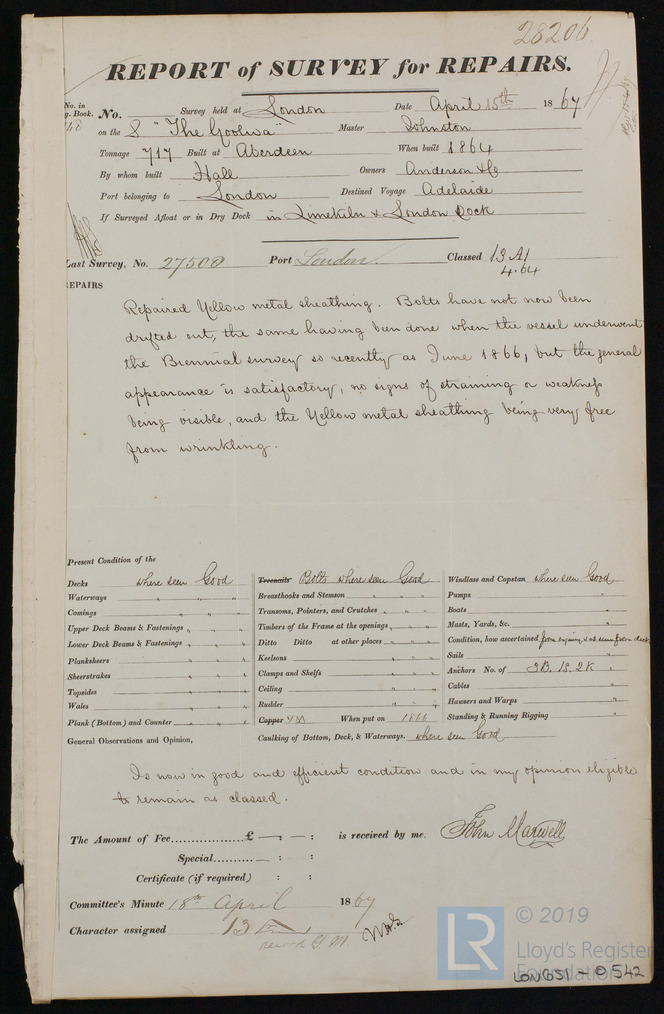 28206
REPORT of SURVEY for REPAIRS.
No. in
g. Book. No. Survey held at London Date April 15th 1867
on the S "The Goolwa" Master Johnston
Tonnage 717 Built at Aberdeen When built 1864
By whom built Hall Owners Anderson & Co
Port belonging to London Destined Voyage Adelaide
If Surveyed Afloat or in Dry Dock in Limekiln & London Dock
Last Survey, No. 27500 Port London Classed 13 A1
4.64
EPAIRS
Repaired Yellow metal sheathing. Bolts have not now been
drifted out, the same having been done when the vessel underwent
the Biennial survey so recently as June 1866, but the general
appearance is satisfactory, no signs of straining or weakness
being visible, and the Yellow metal sheathing being very free
from wrinkling.
Present Condition of the
Decks where seen Good
Waterways " " "
Comings " " "
Upper Deck Beams & Fastenings " " "
Lower Deck Beams & Fastenings " " "
Planksheers " " "
Sheerstrakes " " "
Topsides " " "
Wales " " "
Plank (Bottom) and Counter " " "
General Observations and Opinion,
Treenails Bolts where seen Good
Breasthooks and Stemson " " "
Transoms, Pointers, and Crutches " " "
Timbers of the Frame at the openings " " "
Ditto Ditto at other places " " "
Keelsons " " "
Clamps and Shelfs " " "
Ceiling " " "
Rudder " " "
Copper YM When put on 1866
Caulking of Bottom, Deck, & Waterways. where seen Good
Windlass and Capstan where seen Good
Pumps "
Boats "
Masts, Yards, &c. "
Condition, how ascertained from enquiry & as seen from deck
Sails "
Anchors No. of 3B. 1S. 2K "
Cables "
Hawsers and Warps "
Standing & Running Rigging "
Is now in good and efficient condition and in my opinion eligible
to remain as classed.
The Amount of Fee.................. £ — : — : is received by me. John Maxwell
Special.......... — : :
Certificate (if required) : :
Committee's Minute 18th April 1867
Character assigned 13 A
LR © 2019
Lloyd's Register
Foundation
LON651-0542